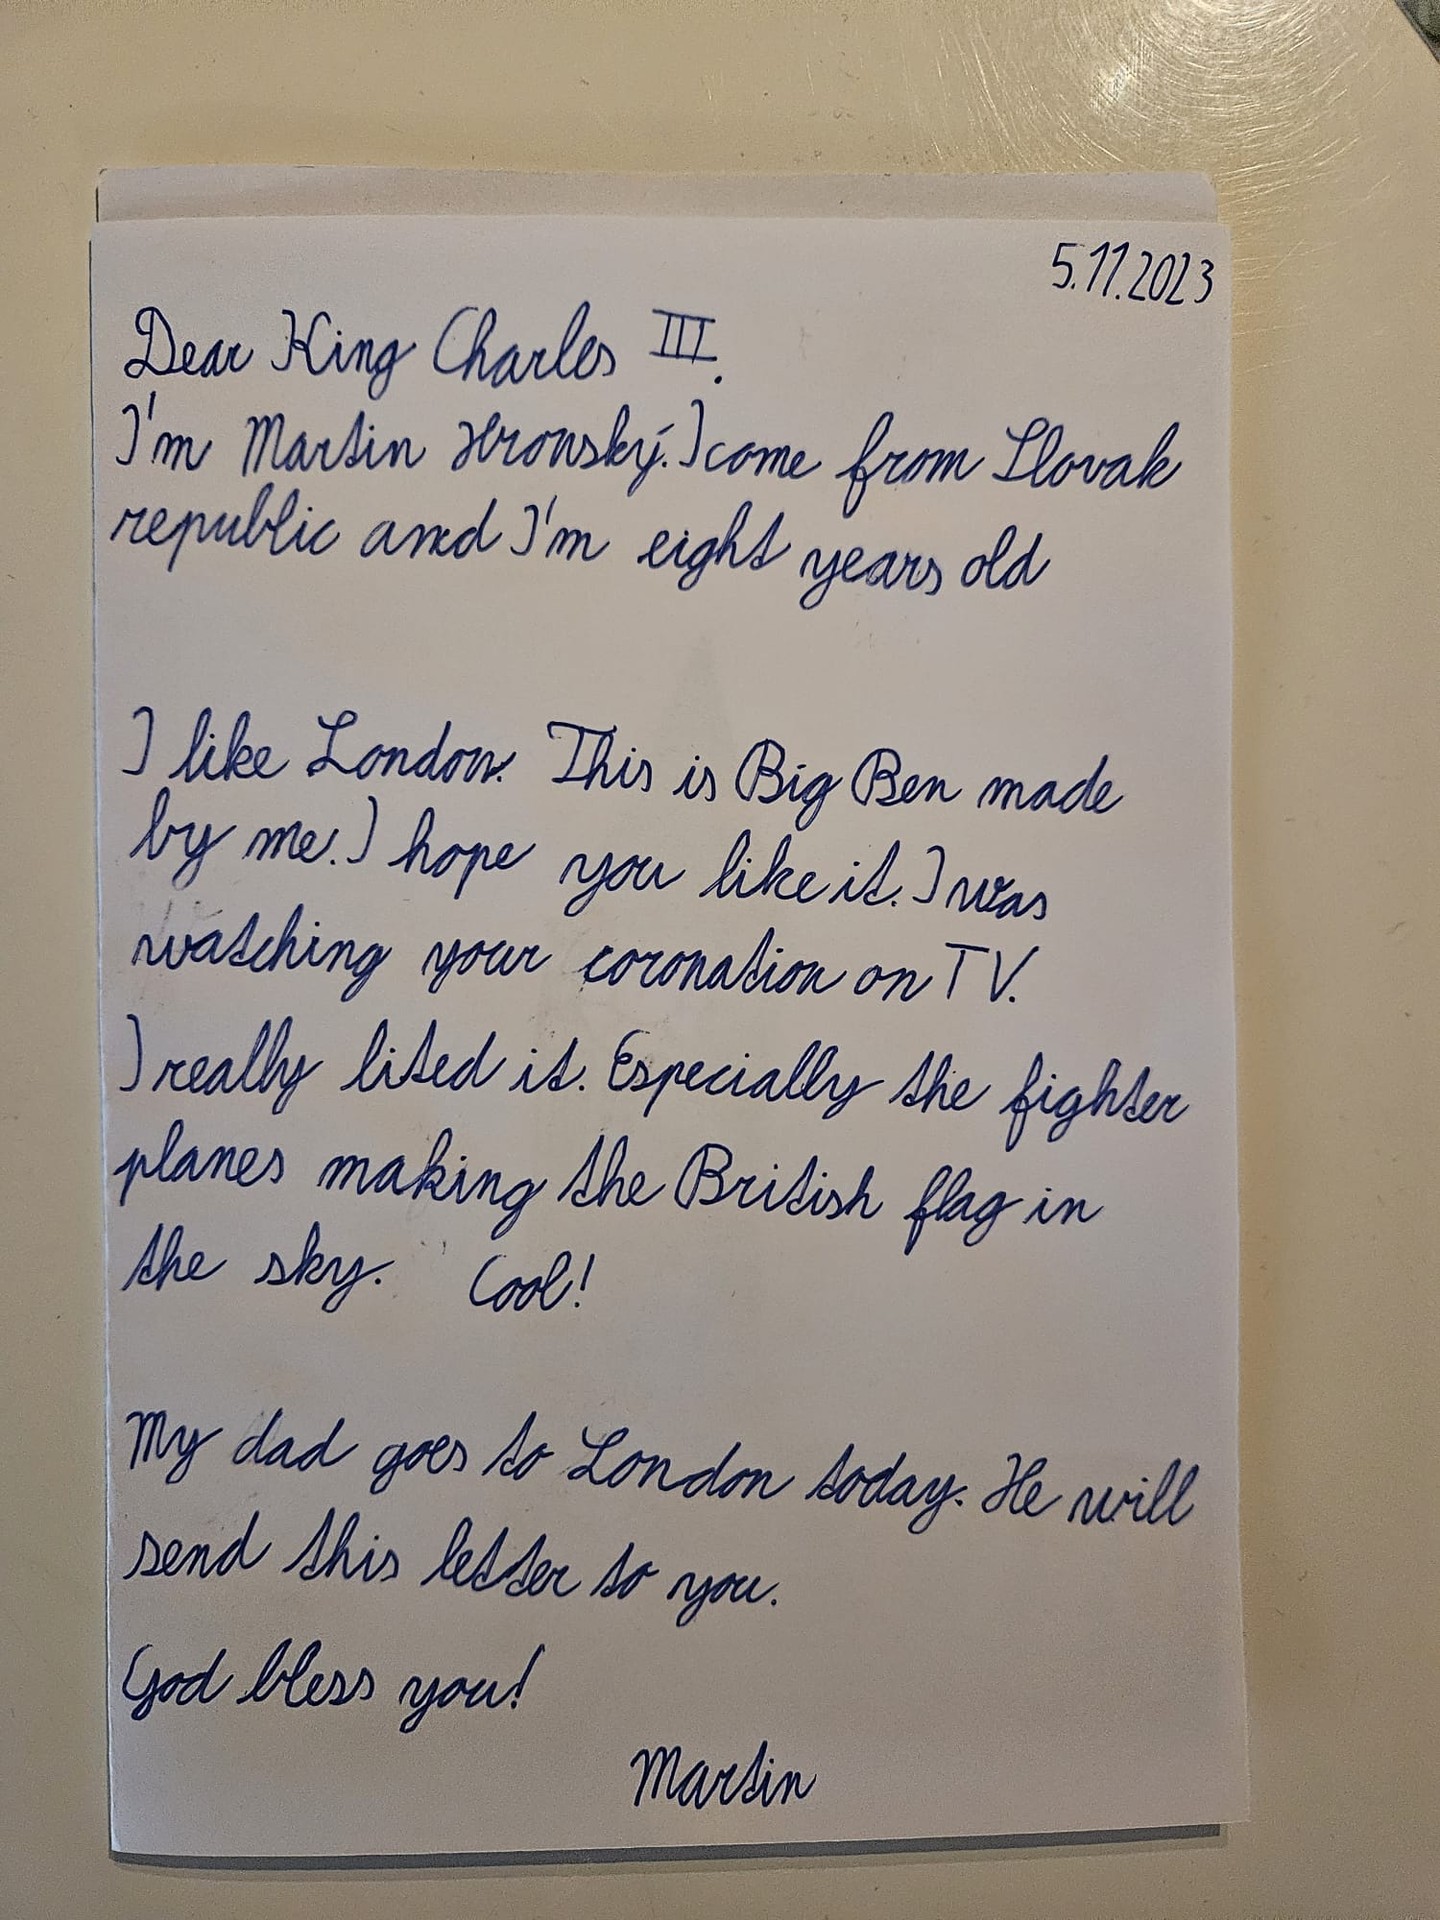 5.11.2023
Dear King Charles III.
I'm Martin Hronský. I come from Slovak
republic and I'm eight years old
I like London. This is Big Ben made
by me. I hope you like it. I was
watching your coronation on TV.
I really lited it. Especially the fighter
planes making the British flag in
the sky. Cool!
My dad goes to London today. He will
send this letter to you.
God bless you!
Martin